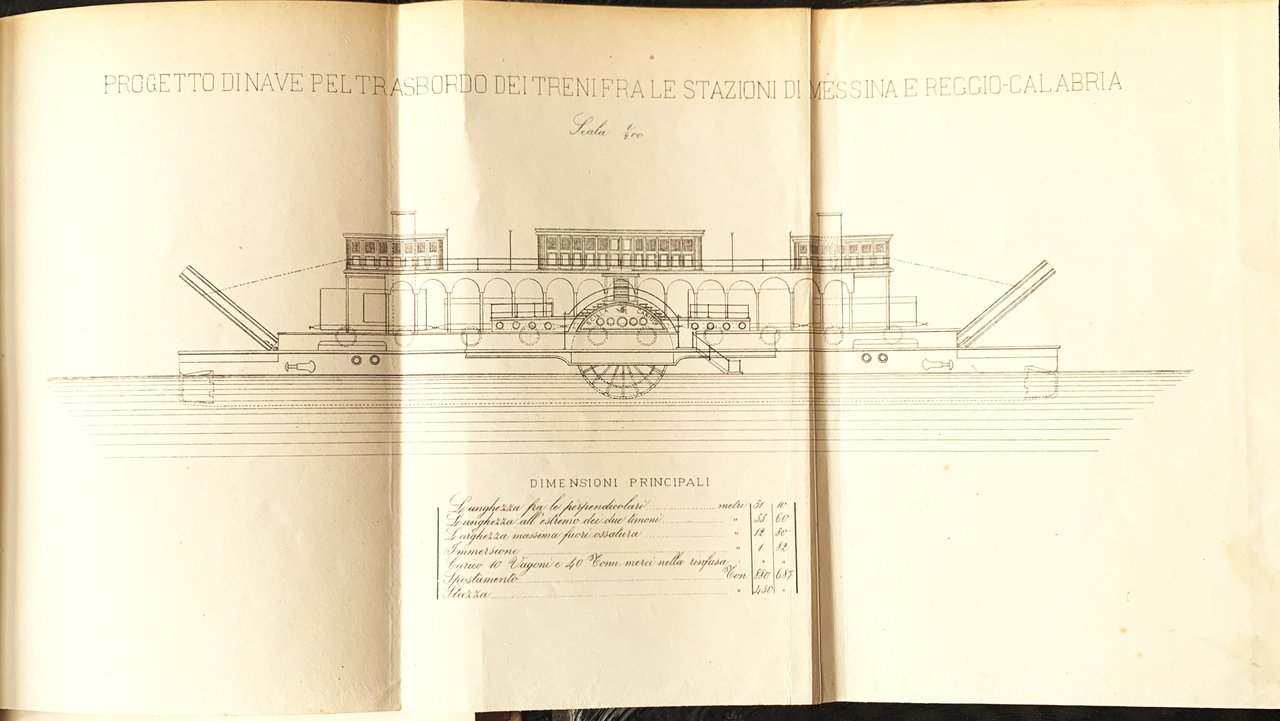 PROGETTO DI NAVE PEL TRASBORDO DEI TRENI FRA LE STAZIONI DI MESSINA E REGGIO-CALABRIA
Scala 1/200
DIMENSIONI PRINCIPALI
Lunghezza fra le perpendicolari metri 51 10
Lunghezza all'estremo dei due timoni " 55 60
Larghezza massima fuori ossatura " 12 80
Immersione " 1 82
Carico 10 Vagoni e 40 Tonn. merci nella renfusa " "
Spostamento Ton. 880 687
Stazza " 450 "